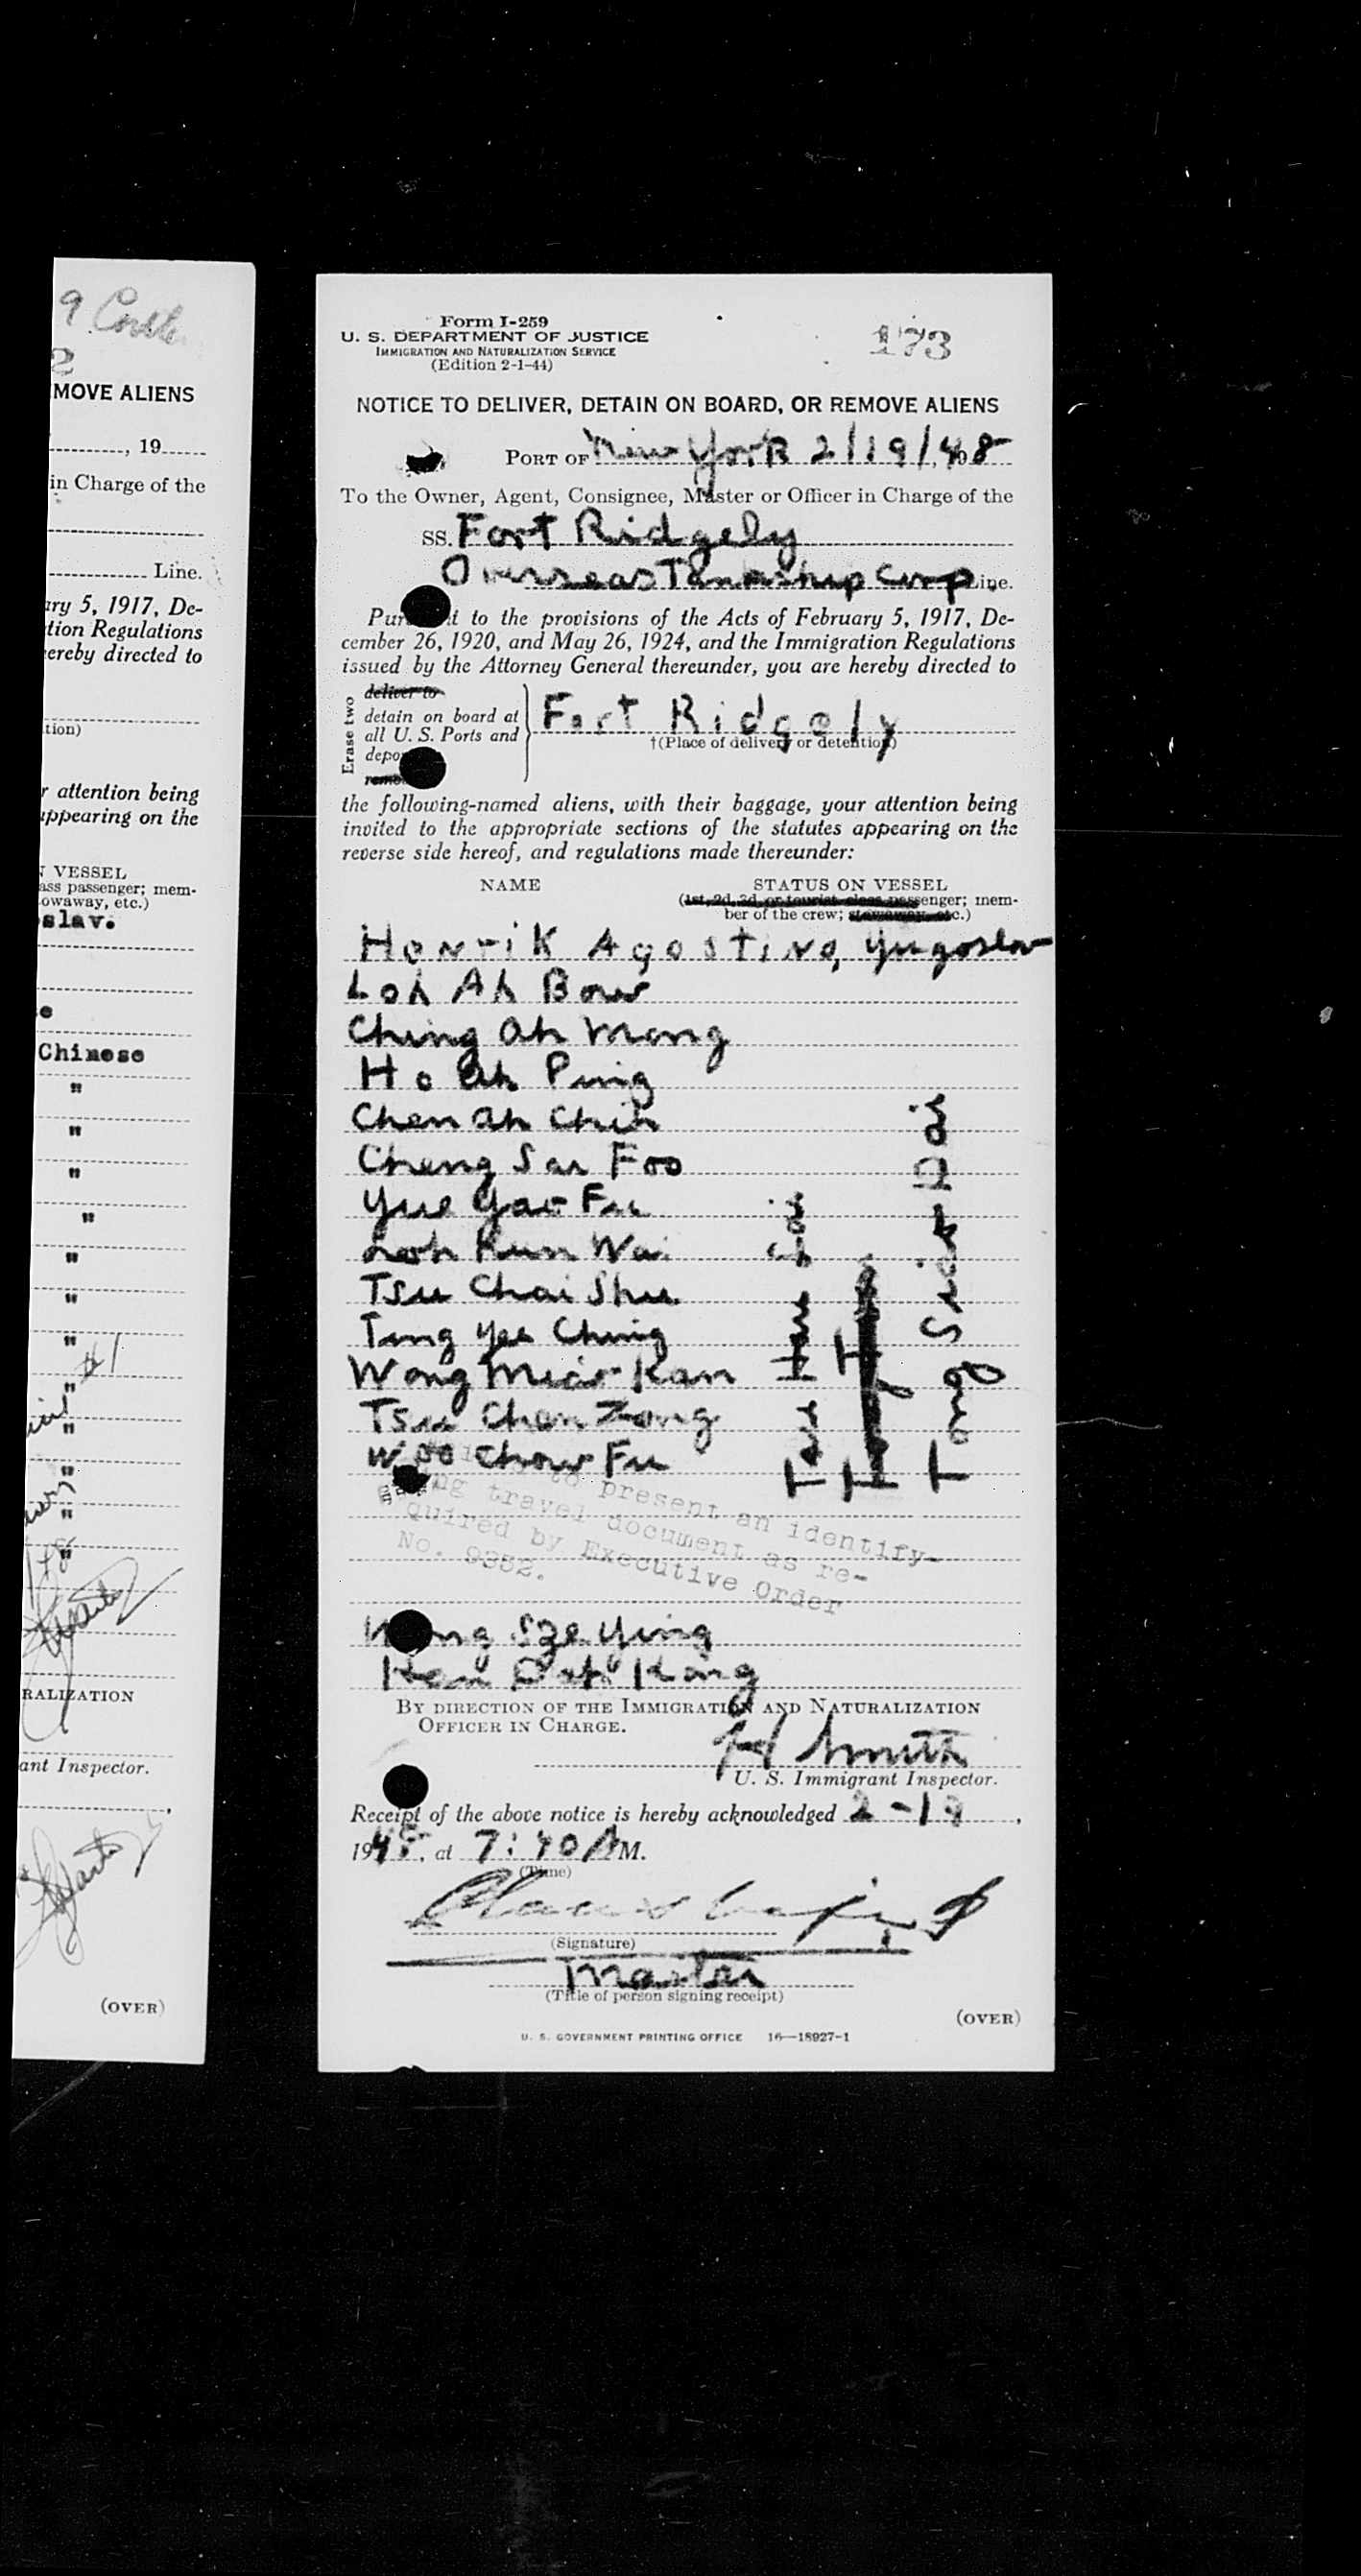 9
2
MOVE ALIENS
, 19
in Charge of the
Line.
ary 5, 1917, De-
tion Regulations
ereby directed to
tion)
r attention being
appearing on the
N VESSEL
ass passenger; mem-
owaway, etc.)
slav.
e
Chinese
"
"
"
"
"
"
"
" #1
"
"
"
"
RALIZATION
ant Inspector.
(OVER)
Form I-259
U. S. DEPARTMENT OF JUSTICE
IMMIGRATION AND NATURALIZATION SERVICE
(Edition 2-1-44)
173
NOTICE TO DELIVER, DETAIN ON BOARD, OR REMOVE ALIENS
PORT OF New York 2/19/48
To the Owner, Agent, Consignee, Master or Officer in Charge of the
SS. Fort Ridgely
Overseas Tankship Corp. Line.
Pur t to the provisions of the Acts of February 5, 1917, De-
cember 26, 1920, and May 26, 1924, and the Immigration Regulations
issued by the Attorney General thereunder, you are hereby directed to
Erase two
deliver to
detain on board at
all U. S. Ports and
depo
Fort Ridgely
†(Place of delivery or detention)
the following-named aliens, with their baggage, your attention being
invited to the appropriate sections of the statutes appearing on the
reverse side hereof, and regulations made thereunder:
NAME STATUS ON VESSEL
(1st, 2d, 3d, or tourist class passenger; mem-
ber of the crew; stowaway, etc.)
Henrik Agostino, Yugoslav
Loh Ah Bow
Ching Ah Mong
Ho Ah Ping
Chen Ah Chih
Cheng Sar Foo
Yue Gao Fu
Loh Kun Wai
Tsu Chai Shu
Ting Yee Ching
Wong Miao Kan
Tsu Chen Zong
Woo Chow Fu
to present an identify-
ing travel document as re-
quired by Executive Order
No. 9352.
ng Sze Ying
Kong
BY DIRECTION OF THE IMMIGRATION AND NATURALIZATION
OFFICER IN CHARGE.
H Smith
U. S. Immigrant Inspector.
Receipt of the above notice is hereby acknowledged 2-19,
1948, at 7:40 AM.
(Time)
(Signature)
Master
(Title of person signing receipt)
(OVER)
U. S. GOVERNMENT PRINTING OFFICE 16—18927-1